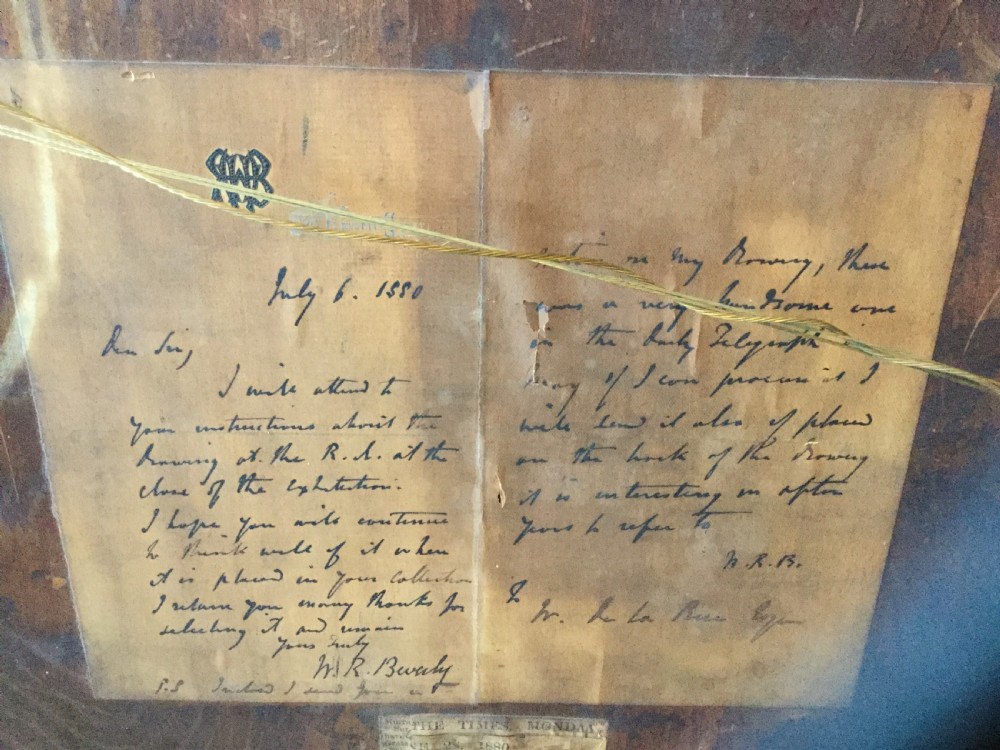 July 6. 1880
Dear Sir,
I will attend to
your instructions about the
drawing at the R. A. at the
close of the exhibition.
I hope you will continue
to think well of it when
it is placed in your collection
I return you many thanks for
selecting it and remain
Yours truly
W. R. Beverly
P.S Inclosed I send you a
on my Drawing, there
was a very handsome one
in the Daily Telegraph
may if I can procure it I
will send it also, if placed
on the back of the drawing
it is interesting in after
years to refer to
W. R. B.
To
W. De La Rue Esqre
THE TIMES, MONDAY,
28, 1880